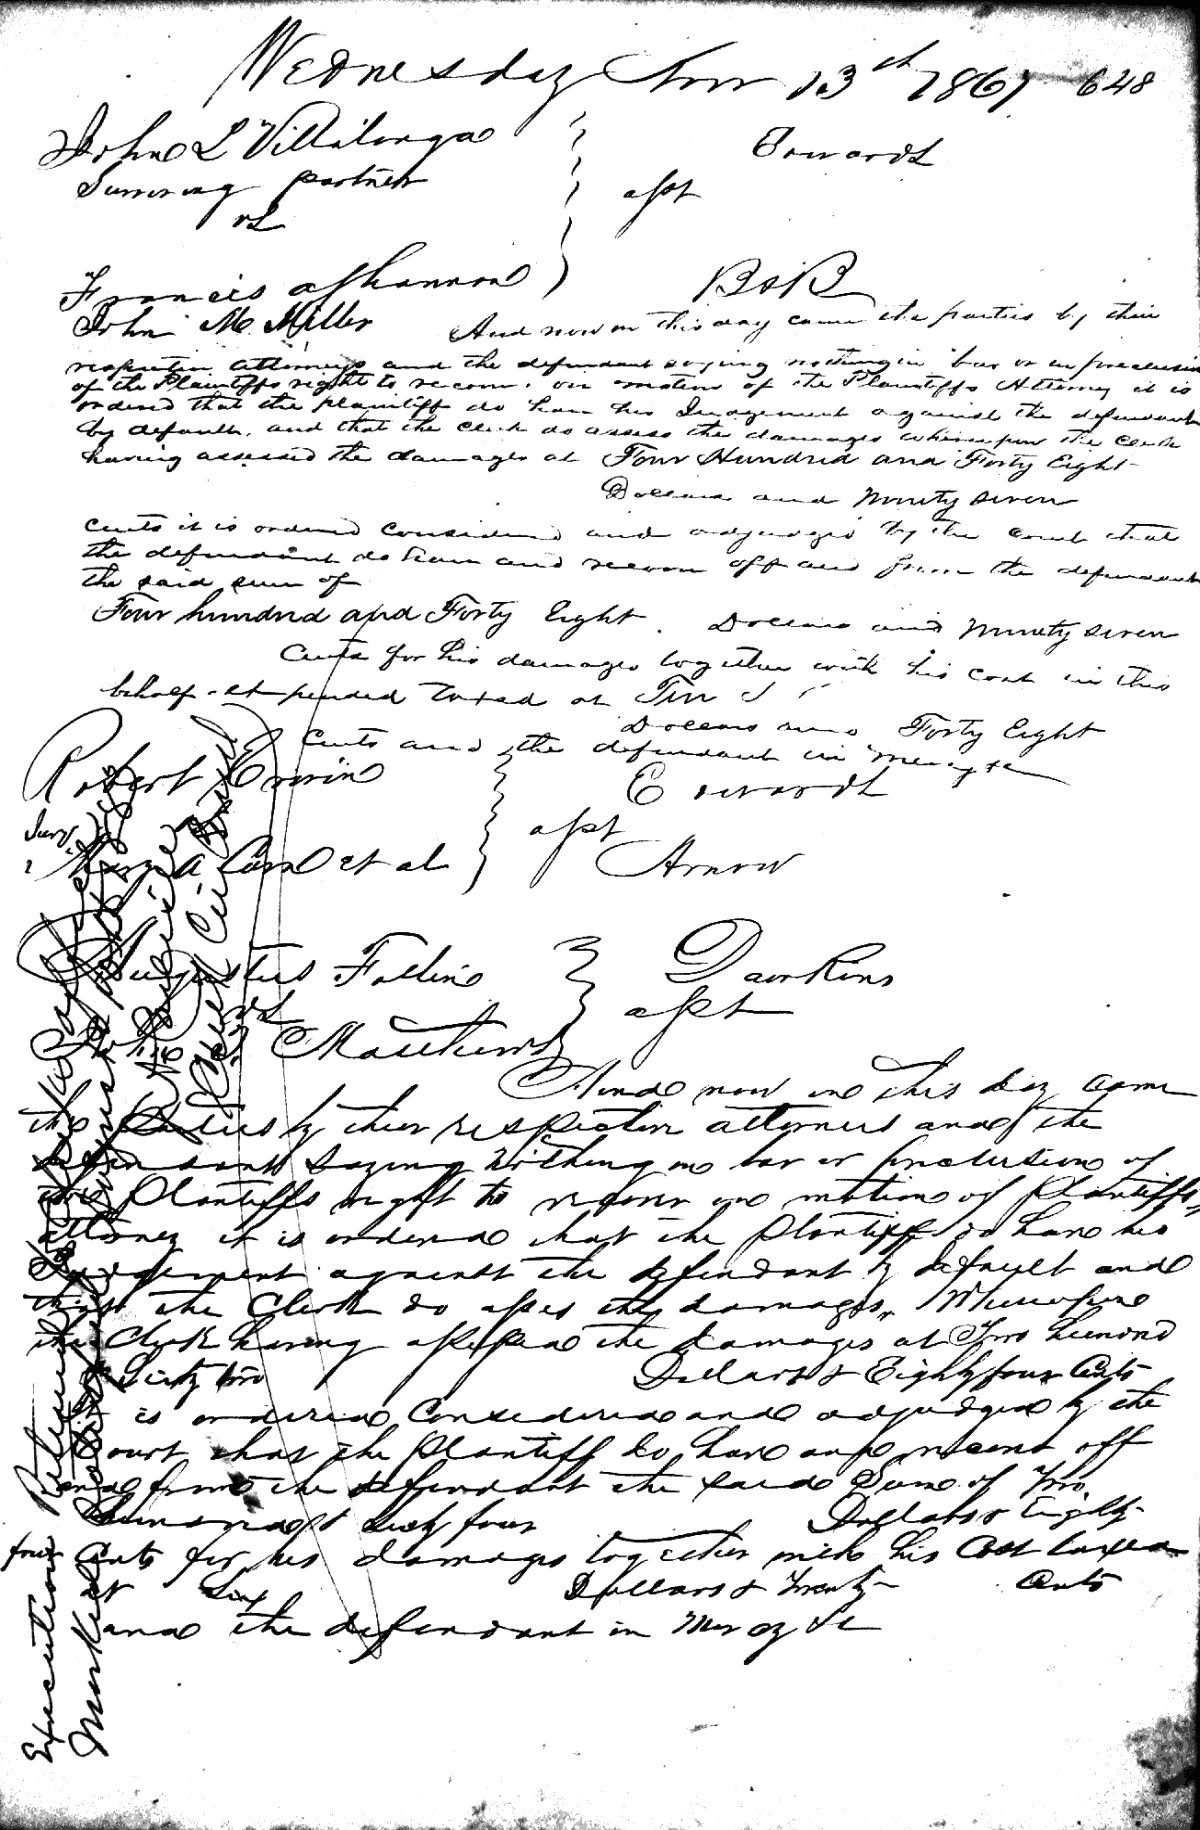 Wednesday Nov 13th 1867 648
John L Villalonga
Surviving partner
vs
Edwards
asst
Francis A Shannon
John M Miller
B & B
And now on this day came the parties by their
respective attorneys and the defendant saying nothing in bar or in preclusion
of the Plaintiffs right to recover, on motion of the Plaintiffs Attorney it is
ordered that the plaintiff do have his Judgement against the defendant
by default, and that the clerk do assess the damages whereupon the clerk
having assessed the damages at Four Hundred and Forty Eight
Dollars and Ninety seven
cents it is ordered considered and adjudged by the court that
the defendant do have and recover off and from the defendant
the said sum of
Four hundred and Forty Eight Dollars and Ninety seven
Cents for his damages together with his cost in this
behalf expended taxed at Ten
Dollars and Forty Eight
Cents and the defendant in mercy &c
Robert Erwin
Edwards
asst
Mary A Carr et al
Arnow
Augustus Follin
vs
Dawkins
asst
Matthews
And now on this day came
the parties by their respective attorneys and the
defendant saying nothing in bar or preclusion of
the Plantiffs right to recover on motion of Plantiffs
attorney it is ordered that the Plantiff do have his
Judgement against the defendant by default and
that the Clerk do asses the damages, Whereupon
the Clerk having assessed the damages at Two hundred
& Sixty two Dollars & Eighty four Cents
is ordered Considered and adjudged by the
Court that the Plantiff do have and recover off
and from the defendant the said Sum of Two
hundred & Sixty four Dollars & Eighty
four Cents for his damages together with his Cost taxed
at Six Dollars & Twenty Cents
and the defendant in Mercy &c
Execution Returned